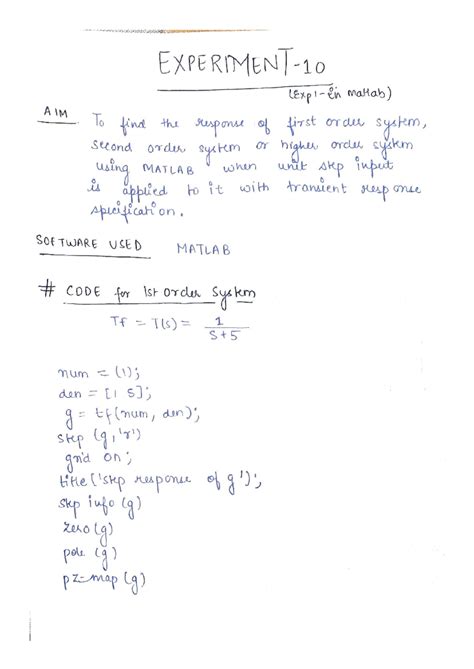 EXPERIMENT-10
(Exp1-in matlab)
AIM To find the response of first order system,
second order system or higher order system
using MATLAB when unit step input
is applied to it with transient response
specification.
SOFTWARE USED MATLAB
# CODE for 1st order system
Tf = T(s) = 1
S+5
num = (1);
den = [1 5];
g = tf(num, den);
step (g,'r')
grid on;
title ['step response of g');
step info (g)
zero (g)
pole (g)
pz=map (g)